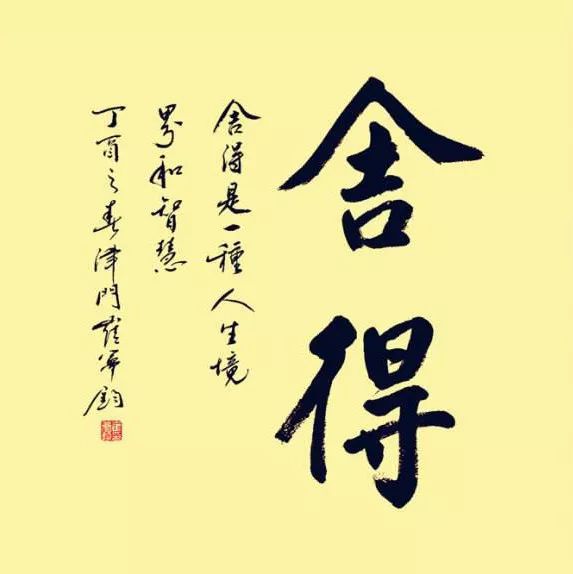 舍得
舍得是一種人生境
界和智慧
丁酉之春津門